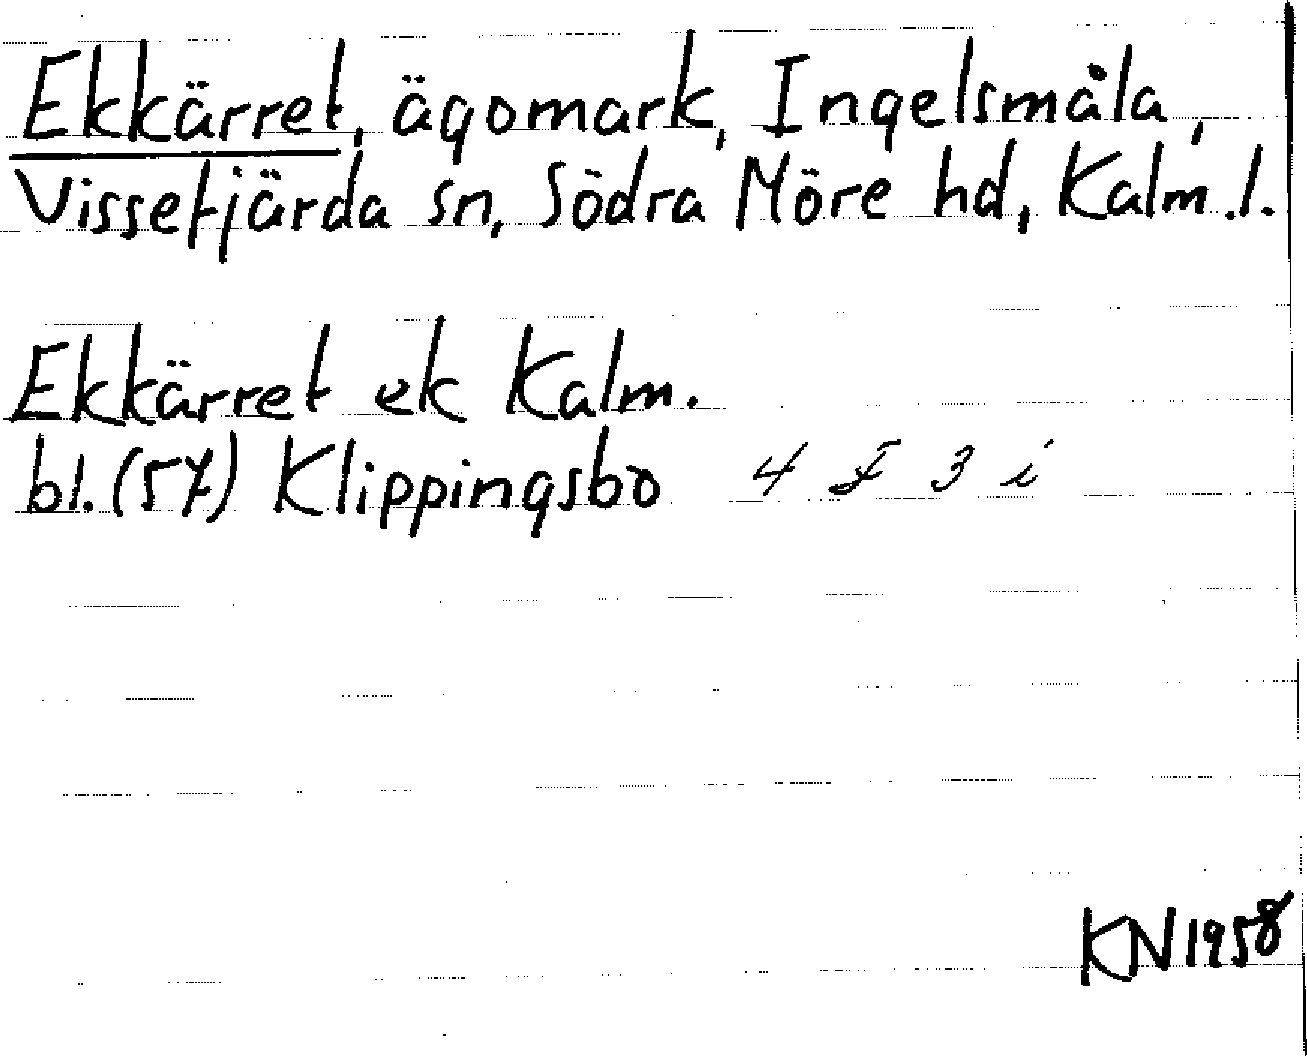 Ekkärret, ägomark, Ingelsmåla,
Vissefjärda sn, Södra Möre hd, Kalm.l.
Ekkärret ek Kalm.
bl. (57) Klippingsbo 4 F 3 i
KN 1958